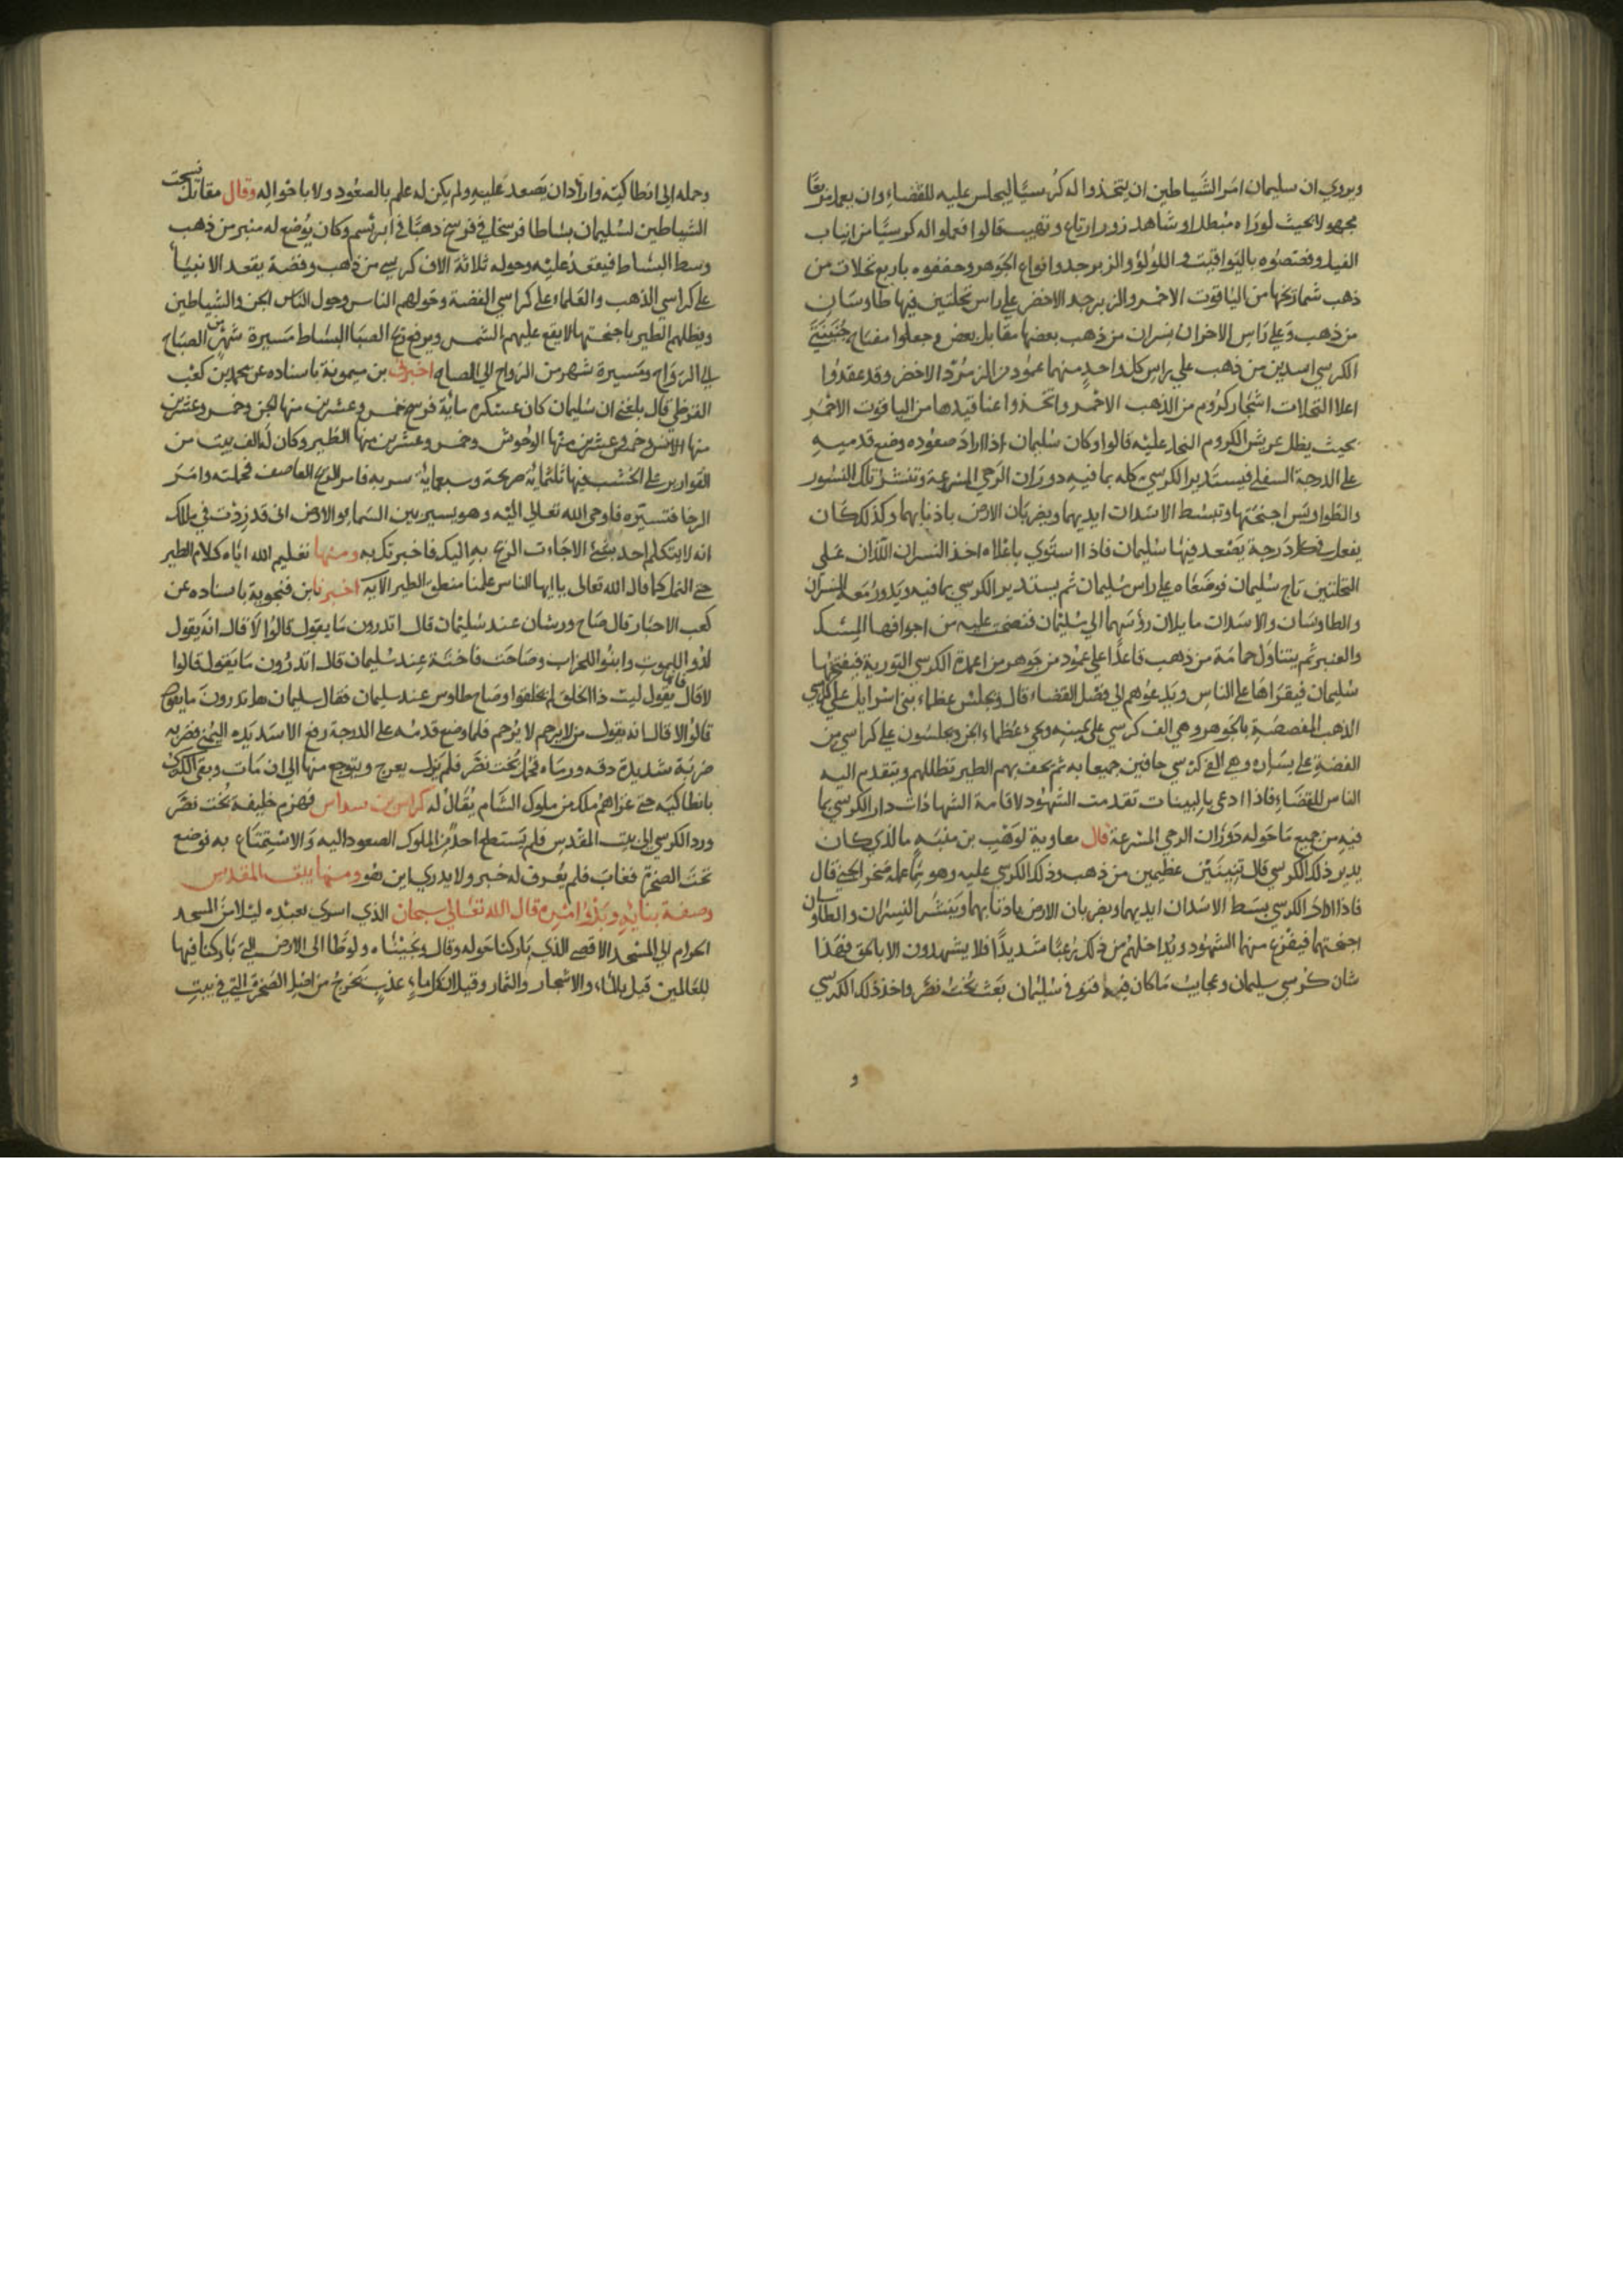 ويروي ان سليمان امر الشياطين ان يتخذوا له كرسيا ليجلس عليه للقضاء وان يعمل بديعا
مجهولا بحيث لو راه مبطل او شاهد زور ارتاع وتهيب قالوا فعملوا له كرسيا من انياب
الفيل وفصصوه باليواقيت واللولو والزبرجد وانواع الجوهر وحففوه باربع نخلات من
ذهب شماريخها من الياقوت الاحمر والزبرجد الاخضر علي راس نخلتين فيها طاوسان
من ذهب وعلي راس الاخران نسران من ذهب بعضها مقابل بعض وجعلوا جنبتي
الكرسي اسدين من ذهب علي راس كل واحد منهما عمود من الزمرد الاخضر وقد عقدوا
اعلا النخلات اشجار كروم من الذهب الاحمر واتخذوا عناقيدها من الياقوت الاحمر
بحيث يظل عريش الكروم النخل عليه قالوا وكان سليمان اذا اراد صعوده وضع قدميه
علي الدرجة السفلي فيستدير الكرسي كله بما فيه دوران الرحي المسرعة وتنشر تلك النسور
والطواويس اجنحتها وتبسط الاسدان ايديهما ويضربان الارض باذنابهما وكذلك كان
يفعل في كل درجة يصعد فيها سليمان فاذا استوي باعلاه اخذ النسران اللذان علي
النخلتين تاج سليمان فوضعاه علي راس سليمان ثم يستدير الكرسي بما فيه ويدور معه النسران
والطاوسان والاسدان مايلان رؤسهما الي سليمان فنضحت عليه من اجوافها المسك
والعنبر ثم يتناول حمامة من ذهب قاعدا علي عمود من جوهر من اعمدة الكرسي التورية فيفتحها
سليمان فيقراها علي الناس ويدعوهم الي فصل القضاء قال ويجلس عظماء بني اسرايل علي كراسي
الذهب المفصصة بالجوهر وهي الف كرسي علي يمينه ويجيء عظماء الجن ويجلسون علي كراسي من
الفضة علي يساره وهي الف كرسي حافين جميعا به ثم يحف بهم الطير تظللهم ويتقدم اليه
الناس للقضاء فاذا ادعي بالبينات تقدمت الشهود لاقامة الشهادات دار الكرسي بما
فيه من جميع ما حوله دوران الرحي المسرعة قال معاوية لوهب بن منبه ما الذي كان
يدير ذلك الكرسي قال تنينين عظيمين من ذهب وذلك الكرسي عليه وهو مما عمله صخر الجني قال
فاذا دار الكرسي بسط الاسدان ايديهما ويضربان الارض باذنابهما وينشر النسران والطاوسان
اجنحتهما فيفزع منها الشهود ويداخلهم من ذلك رعبا شديدا فلا يشهدون الا بالحق فهذا
شان كرسي سليمان وعجايب ما كان فيه فتوفي سليمان بعث بخت نصر واخذ ذلك الكرسي
و
وحمله الي انطاكية واراد ان يصعد عليه ولم يكن له علم بالصعود ولا باحواله وقال مقاتل نسجت
الشياطين لسليمان بساطا فرسخا في فرسخ ذهبا في ابريسم وكان يوضع له منبر من ذهب
وسط البساط فيقعد عليه وحوله ثلاثة الاف كرسي من ذهب وفضة يقعد الانبيا
علي كراسي الذهب والعلماء علي كراسي الفضة وحولهم الناس وحول الناس الجن والشياطين
ويظلهم الطير باجنحتها لا يقع عليهم الشمس ويرفع ريح الصبا البساط مسيرة شهر من الصباح
الي الرواح ومسيرة شهر من الرواح الي الصباح اخبرني بن ميمونة باسناده عن محمد بن كعب
القرظي قال بلغني ان سليمان كان عسكره ماية فرسخ خمس وعشرين منها الجن وخمس وعشرين
منها الانس وخمس وعشرين منها الوحوش وخمس وعشرين منها الطير وكان له الف بيت من
القوارير علي الخشب فيها ثلثماية صريحة وسبعماية سريه فامر الريح العاصف فحملته وامر
الرخا فتسيره فاوحي الله تعالي اليه وهو يسير بين السما والارض اني قد زدت في ملكك
انه لا يتكلم احد بشي الا جاءت الريح به اليك فاخبرتك به ومنها تعليم الله اياه كلام الطير
حتي النمل كما قال الله تعالي يا ايها الناس علمنا منطق الطير الاية اخبرنا بن فنجوية باسناده عن
كعب الاحبار قال صاح ورشان عند سليمان قال اتدرون ما يقول قالوا لا قال انه يقول
لدوا للموت وابنوا للخراب وصاحت فاختة عند سليمان قال اتدرون ما يقول قالوا
لا قال فانها يقول ليت ذا الخلق لم يخلقوا وصاح طاوس عند سليمان فقال سليمان هل تدرون ما يقول
قالوا لا قال انه يقول من لا يرحم لا يرحم فلما وضع قدمه علي الدرجة رفع الاسد يده اليمني فضربه
ضربة شديدة دقه ورماه فحمل بخت نصر فلم يزل يعرج ويتوجع منها الي ان مات وبقي الكرسي
بانطاكية حتي غزاهم ملك من ملوك الشام يقال له كراس بن سداس فهزم خليفة بخت نصر
ورد الكرسي الي بيت المقدس فلم يستطع احد من الملوك الصعود اليه والاستمتاع به فوضع
تحت الصخرة فغاب فلم يعرف له خبر ولا يدري اين هو ومنها بيت المقدس
وصفة بنايه وبدو امره قال الله تعالي سبحان الذي اسري بعبده ليلا من المسجد
الحرام الي المسجد الاقصي الذي باركنا حوله وقال ونجيناه ولوطا الي الارض التي باركنا فيها
للعالمين قيل بالماء والاشجار والثمار وقيل ان كل ماء عذب يخرج من اصل الصخرة التي في بيت